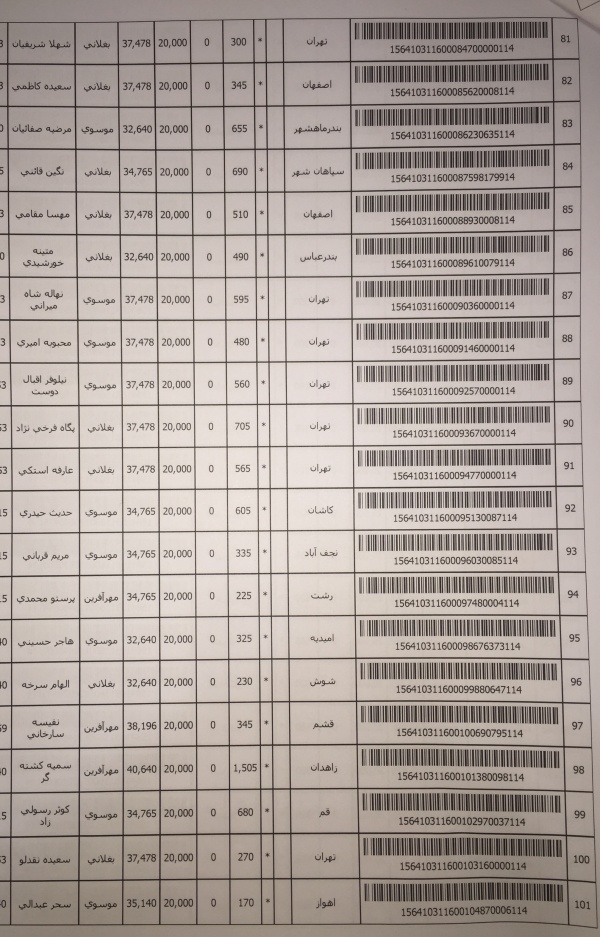 81 156410311600084700000114 تهران * 300 0 20,000 37,478 بغلاني شهلا شريفيان
82 156410311600085620008114 اصفهان * 345 0 20,000 37,478 بغلاني سعيده كاظمي
83 156410311600086230635114 بندرماهشهر * 655 0 20,000 32,640 موسوي مرضيه صفائيان
84 156410311600087598179914 سپاهان شهر * 690 0 20,000 34,765 بغلاني نگين قائني
85 156410311600088930008114 اصفهان * 510 0 20,000 37,478 بغلاني مهسا مقامي
86 156410311600089610079114 بندرعباس * 490 0 20,000 32,640 بغلاني متينه
خورشيدي
87 156410311600090360000114 تهران * 595 0 20,000 37,478 موسوي نهاله شاه
ميراني
88 156410311600091460000114 تهران * 480 0 20,000 37,478 موسوي محبوبه اميري
89 156410311600092570000114 تهران * 560 0 20,000 37,478 موسوي نيلوفر اقبال
دوست
90 156410311600093670000114 تهران * 705 0 20,000 37,478 بغلاني پگاه فرخي نژاد
91 156410311600094770000114 تهران * 565 0 20,000 37,478 بغلاني عارفه استكي
92 156410311600095130087114 كاشان * 605 0 20,000 34,765 موسوي حديث حيدري
93 156410311600096030085114 نجف آباد * 335 0 20,000 34,765 موسوي مريم قرباني
94 156410311600097480004114 رشت * 225 0 20,000 34,765 مهرآفرين پرستو محمدي
95 156410311600098676373114 اميديه * 325 0 20,000 32,640 موسوي هاجر حسيني
96 156410311600099880647114 شوش * 230 0 20,000 32,640 بغلاني الهام سرخه
97 156410311600100690795114 قشم * 345 0 20,000 38,196 مهرآفرين نفيسه
سارخاني
98 156410311600101380098114 زاهدان * 1,505 0 20,000 40,640 مهرآفرين سميه كشته
گر
99 156410311600102970037114 قم * 680 0 20,000 34,765 موسوي كوثر رسولي
زاد
100 156410311600103160000114 تهران * 270 0 20,000 37,478 بغلاني سعيده نقدلو
101 156410311600104870006114 اهواز * 170 0 20,000 35,140 موسوي سحر عبدالي